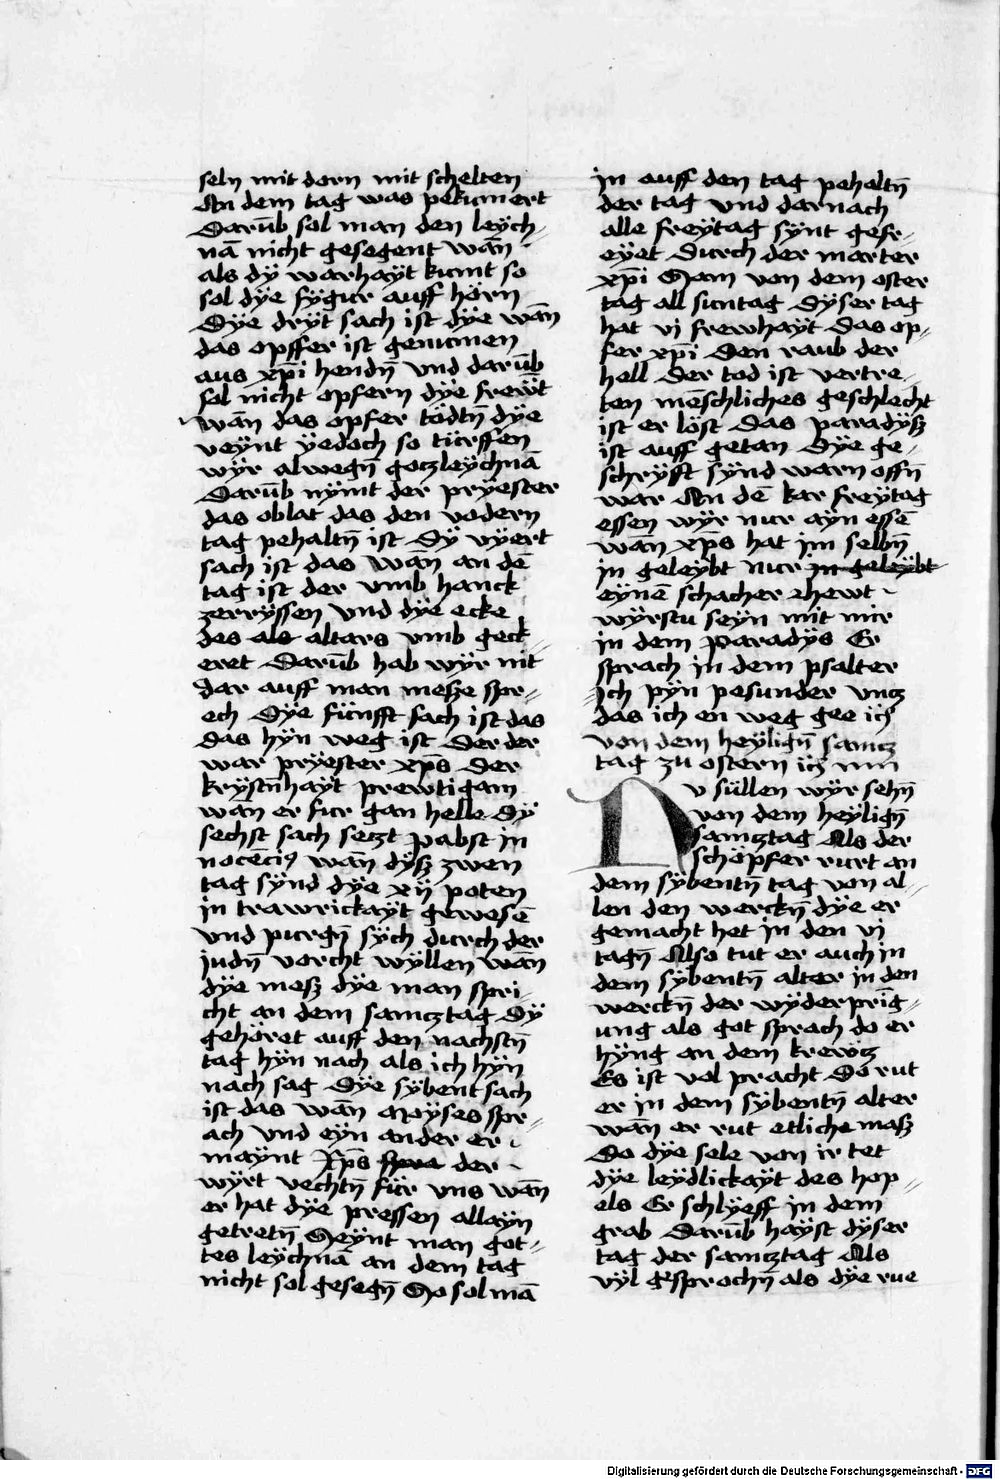 seln mit dorn mit schelten
An dem tag was pekumert
Darūb sol man den leÿch⸗
nā nicht gesegent wān
als dÿ warhaÿt kumt so
sol dÿe fÿgur auff hörn
Dÿe drÿt sach ist dÿe wān
das opffer ist genumen
aus xp̄i hendn̄ vnd darūb
sol nicht opfern dÿe frewt
wān das opfer tödtn̄ dÿe
veÿnt ÿedoch so türffen
wÿr alwegn̄ gotzleÿchnā
Darūb nÿmt der prÿester
das oblat das den vodern
tag pehaltn̄ ist Dÿ vÿert
sach ist das wān an dē
tag ist der vmb hanck
zerrÿssen vnd dÿe ecke
des als altars vmb geck⸗
eret Darūb hab wÿr nit
dar auff man mesße spr⸗
ech Dÿe fünfft sach ist das
das hÿn weg ist Der der
war prÿester xp̄s Der
krÿstn̄haÿt prewtigam
wān er fur gan helle Dÿ
sechst sach setzt pabst in
nocēciꝰ wān dÿsz zwen
tag sÿnd dÿe xij poten
in trawrickaÿt gewesē
vnd purgn̄ sÿch durch der
judn̄ vorcht wÿllen wān
dÿe mesz dÿe man spri⸗
cht an dem samcztag Dÿ
gehöret auff den nachstn̄
tag hÿn nach als ich hÿn
nach sag Dÿe sÿbent sach
ist das wān Moÿses spr⸗
ach vnd eÿn ander er
maÿnt xp̄s der
wÿrt vechtn̄ für vns wān
er hat dÿe pressen allaÿn
getretn̄ Seÿnt man got⸗
tes leÿchnā an dem tag
nicht sol gesegn̄ So sol mā
in auff den tag pehaltn̄
der tag vnd darnach
alle freÿtag sÿnt gefr⸗
eÿet Durch der marter
xp̄i Sam von dem oster
tag all suntag Dÿser tag
hat vi frewhaÿt Das op⸗
fer xp̄i Den raub der
hell Der tod ist vertre⸗
ten mēschliches geschlecht
ist er löst Das paradÿsz
ist auff getan Dÿe ge⸗
schrÿfft sÿnd warn offn̄
war An dē kar freÿtag
essen wÿr nur aÿn essē
wān xp̄s hat im selbn̄
in geleÿbt nur in geleÿbt
eÿnē schacher hewt
wÿrstu seÿn mit mir
in dem paradÿs Er
sprach in dem psalter
Ich pÿn pesunder vncz
das ich en weg gee
von dem heÿlign̄ samcz
tag zu ostern
Nv süllen wÿr sehn̄
von dem heÿlign̄
samcztag Als der
schöpfer rurt an
dem sÿbentn̄ tag von al⸗
len den werckn̄ dÿe er
gemacht het in den vi
tagn̄ Also tut er auch in
dem sÿbentn̄ alter in den
werckn̄ der wÿderprīg⸗
ung als got sprach do er
hÿng an dem krewcz
Es ist vol pracht Do rut
er in dem sÿbentn̄ alter
wān er rut etliche masz
Do dÿe sele von ir tet
dÿe leÿdlickaÿt des hop⸗
els Er schlÿeff in dem
grab Darūb haÿst dÿser
tag der samcztag Als
vÿl gesprochn̄ als dÿe rue
Digitalisierung gefördert durch die Deutsche Forschungsgemeinschaft - DFG